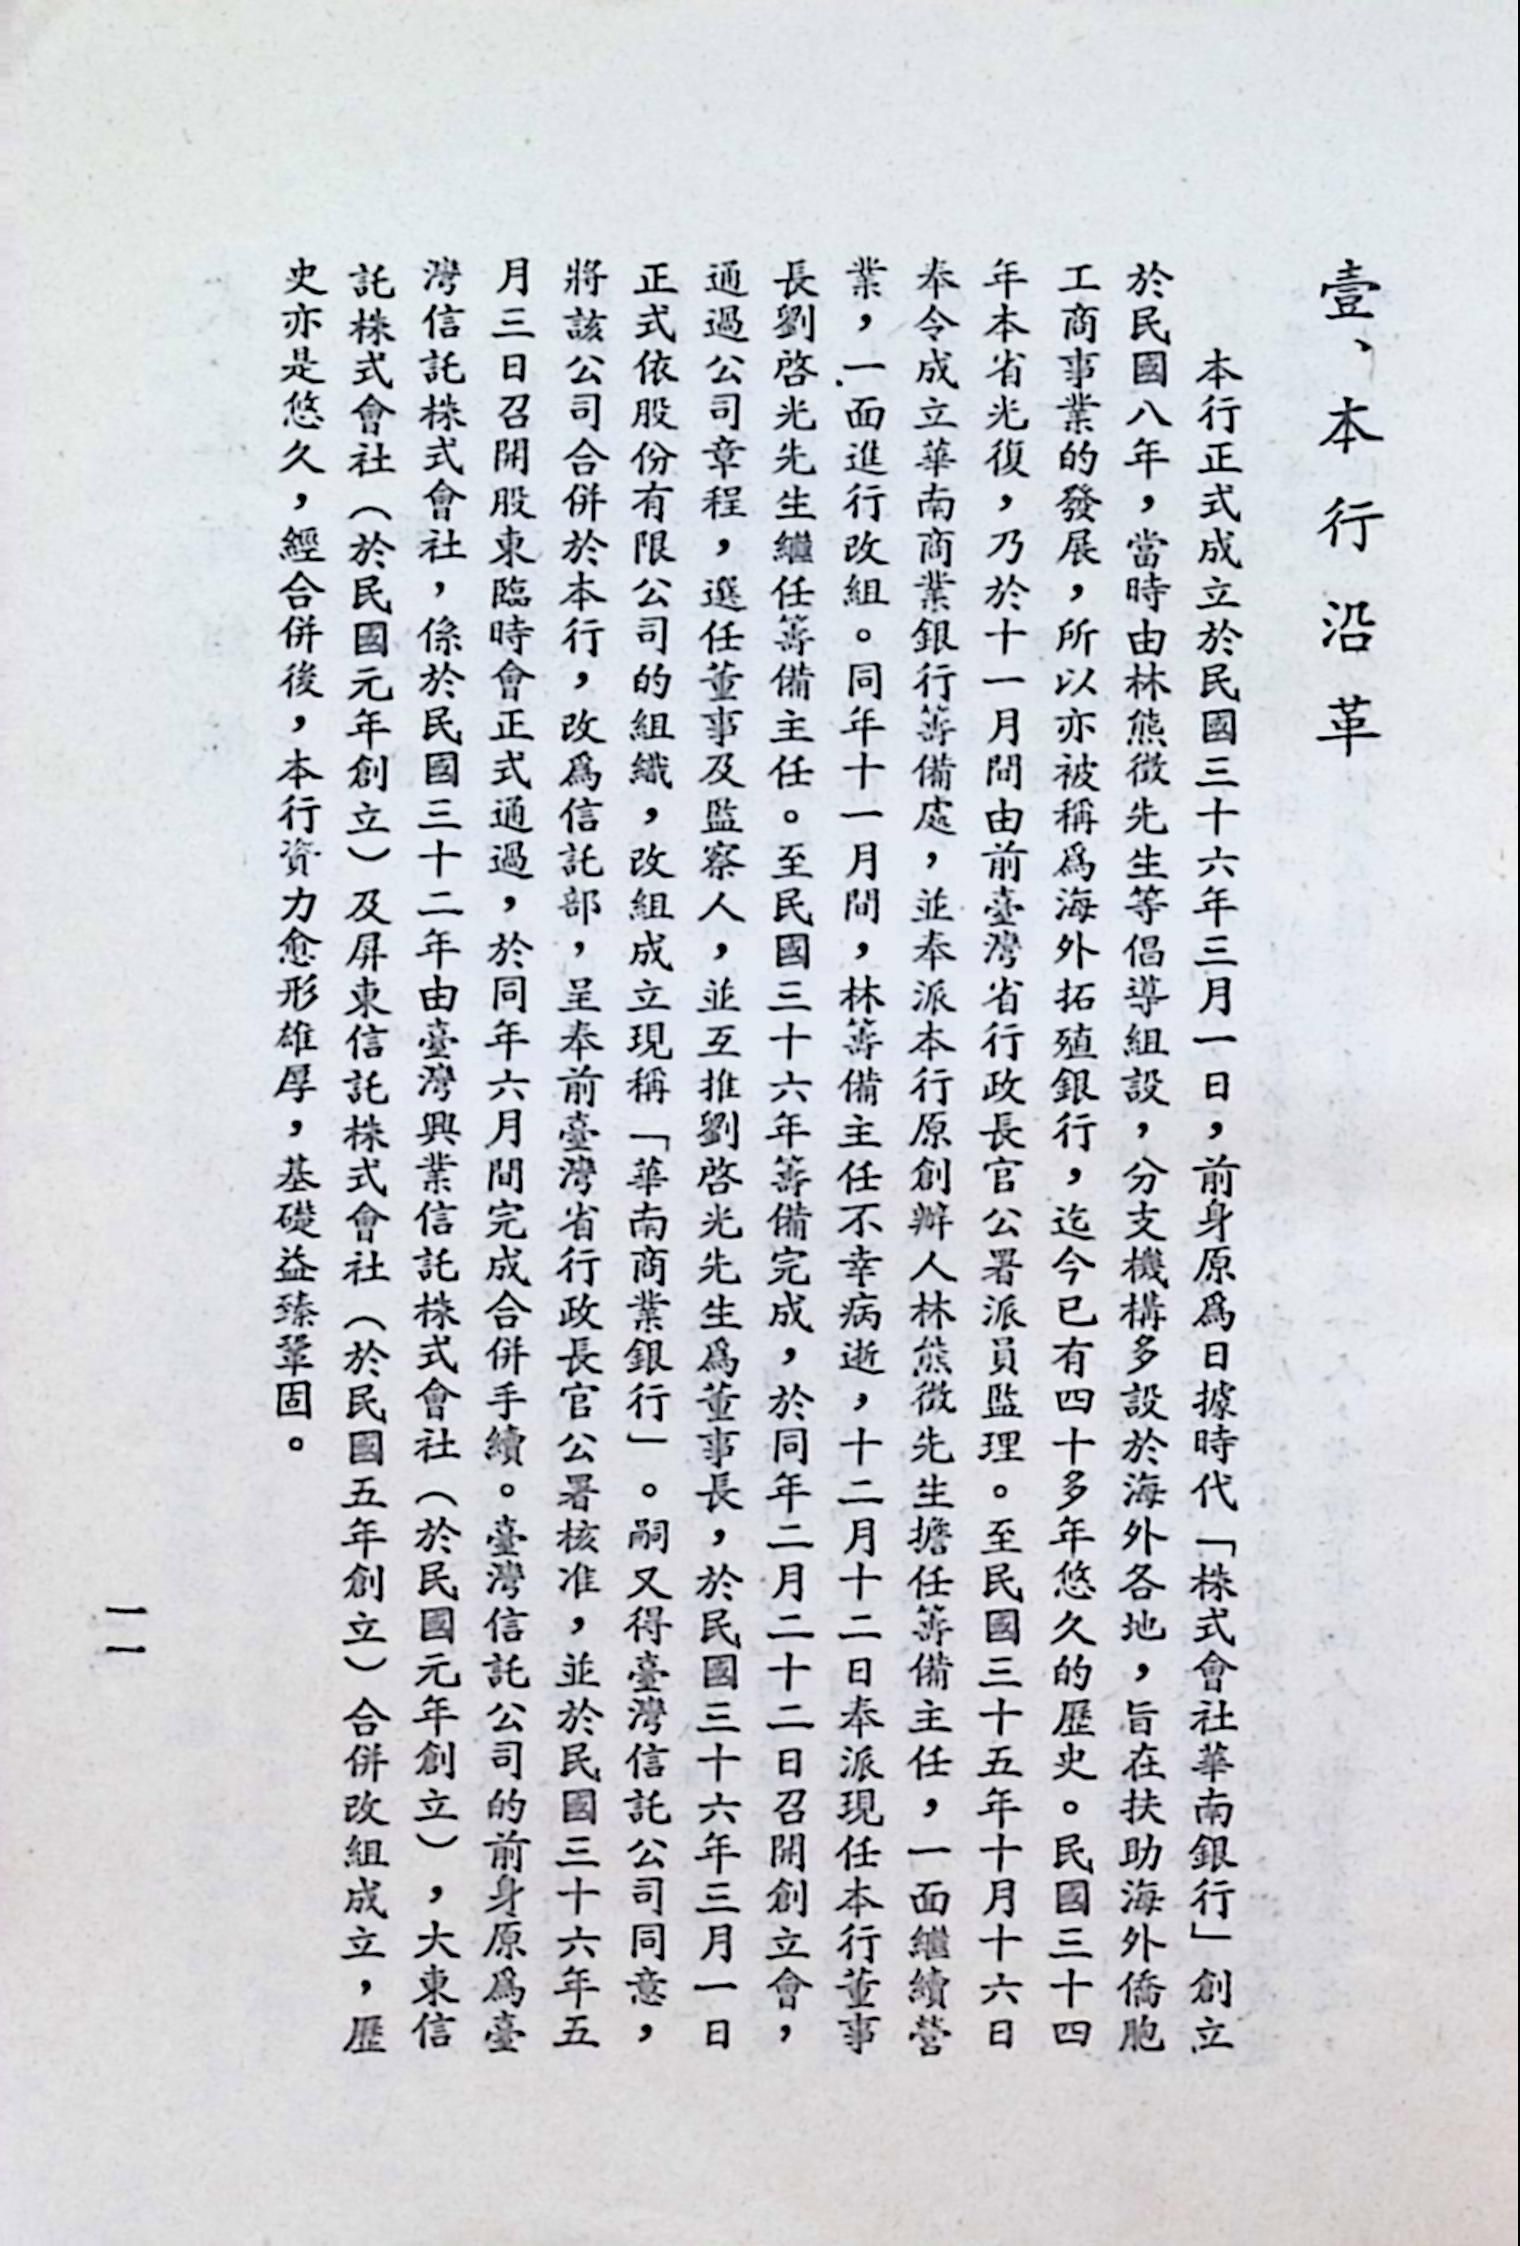 壹、本行沿革
本行正式成立於民國三十六年三月一日，前身原爲日據時代「株式會社華南銀行」創立
於民國八年，當時由林熊徵先生等倡導組設，分支機構多設於海外各地，旨在扶助海外僑胞
工商事業的發展，所以亦被稱爲海外拓殖銀行，迄今已有四十多年悠久的歷史。民國三十四
年本省光復，乃於十一月間由前臺灣省行政長官公署派員監理。至民國三十五年十月十六日
奉令成立華南商業銀行籌備處，並奉派本行原創辦人林熊徵先生擔任籌備主任，一面繼續營
業，一面進行改組。同年十一月間，林籌備主任不幸病逝，十二月十二日奉派現任本行董事
長劉啓光先生繼任籌備主任。至民國三十六年籌備完成，於同年二月二十二日召開創立會，
通過公司章程，選任董事及監察人，並互推劉啓光先生爲董事長，於民國三十六年三月一日
正式依股份有限公司的組織，改組成立現稱「華南商業銀行」。嗣又得臺灣信託公司同意，
將該公司合併於本行，改爲信託部，呈奉前臺灣省行政長官公署核准，並於民國三十六年五
月三日召開股東臨時會正式通過，於同年六月間完成合併手續。臺灣信託公司的前身原爲臺
灣信託株式會社，係於民國三十二年由臺灣興業信託株式會社（於民國元年創立），大東信
託株式會社（於民國元年創立）及屏東信託株式會社（於民國五年創立）合併改組成立，歷
史亦是悠久，經合併後，本行資力愈形雄厚，基礎益臻鞏固。
一一